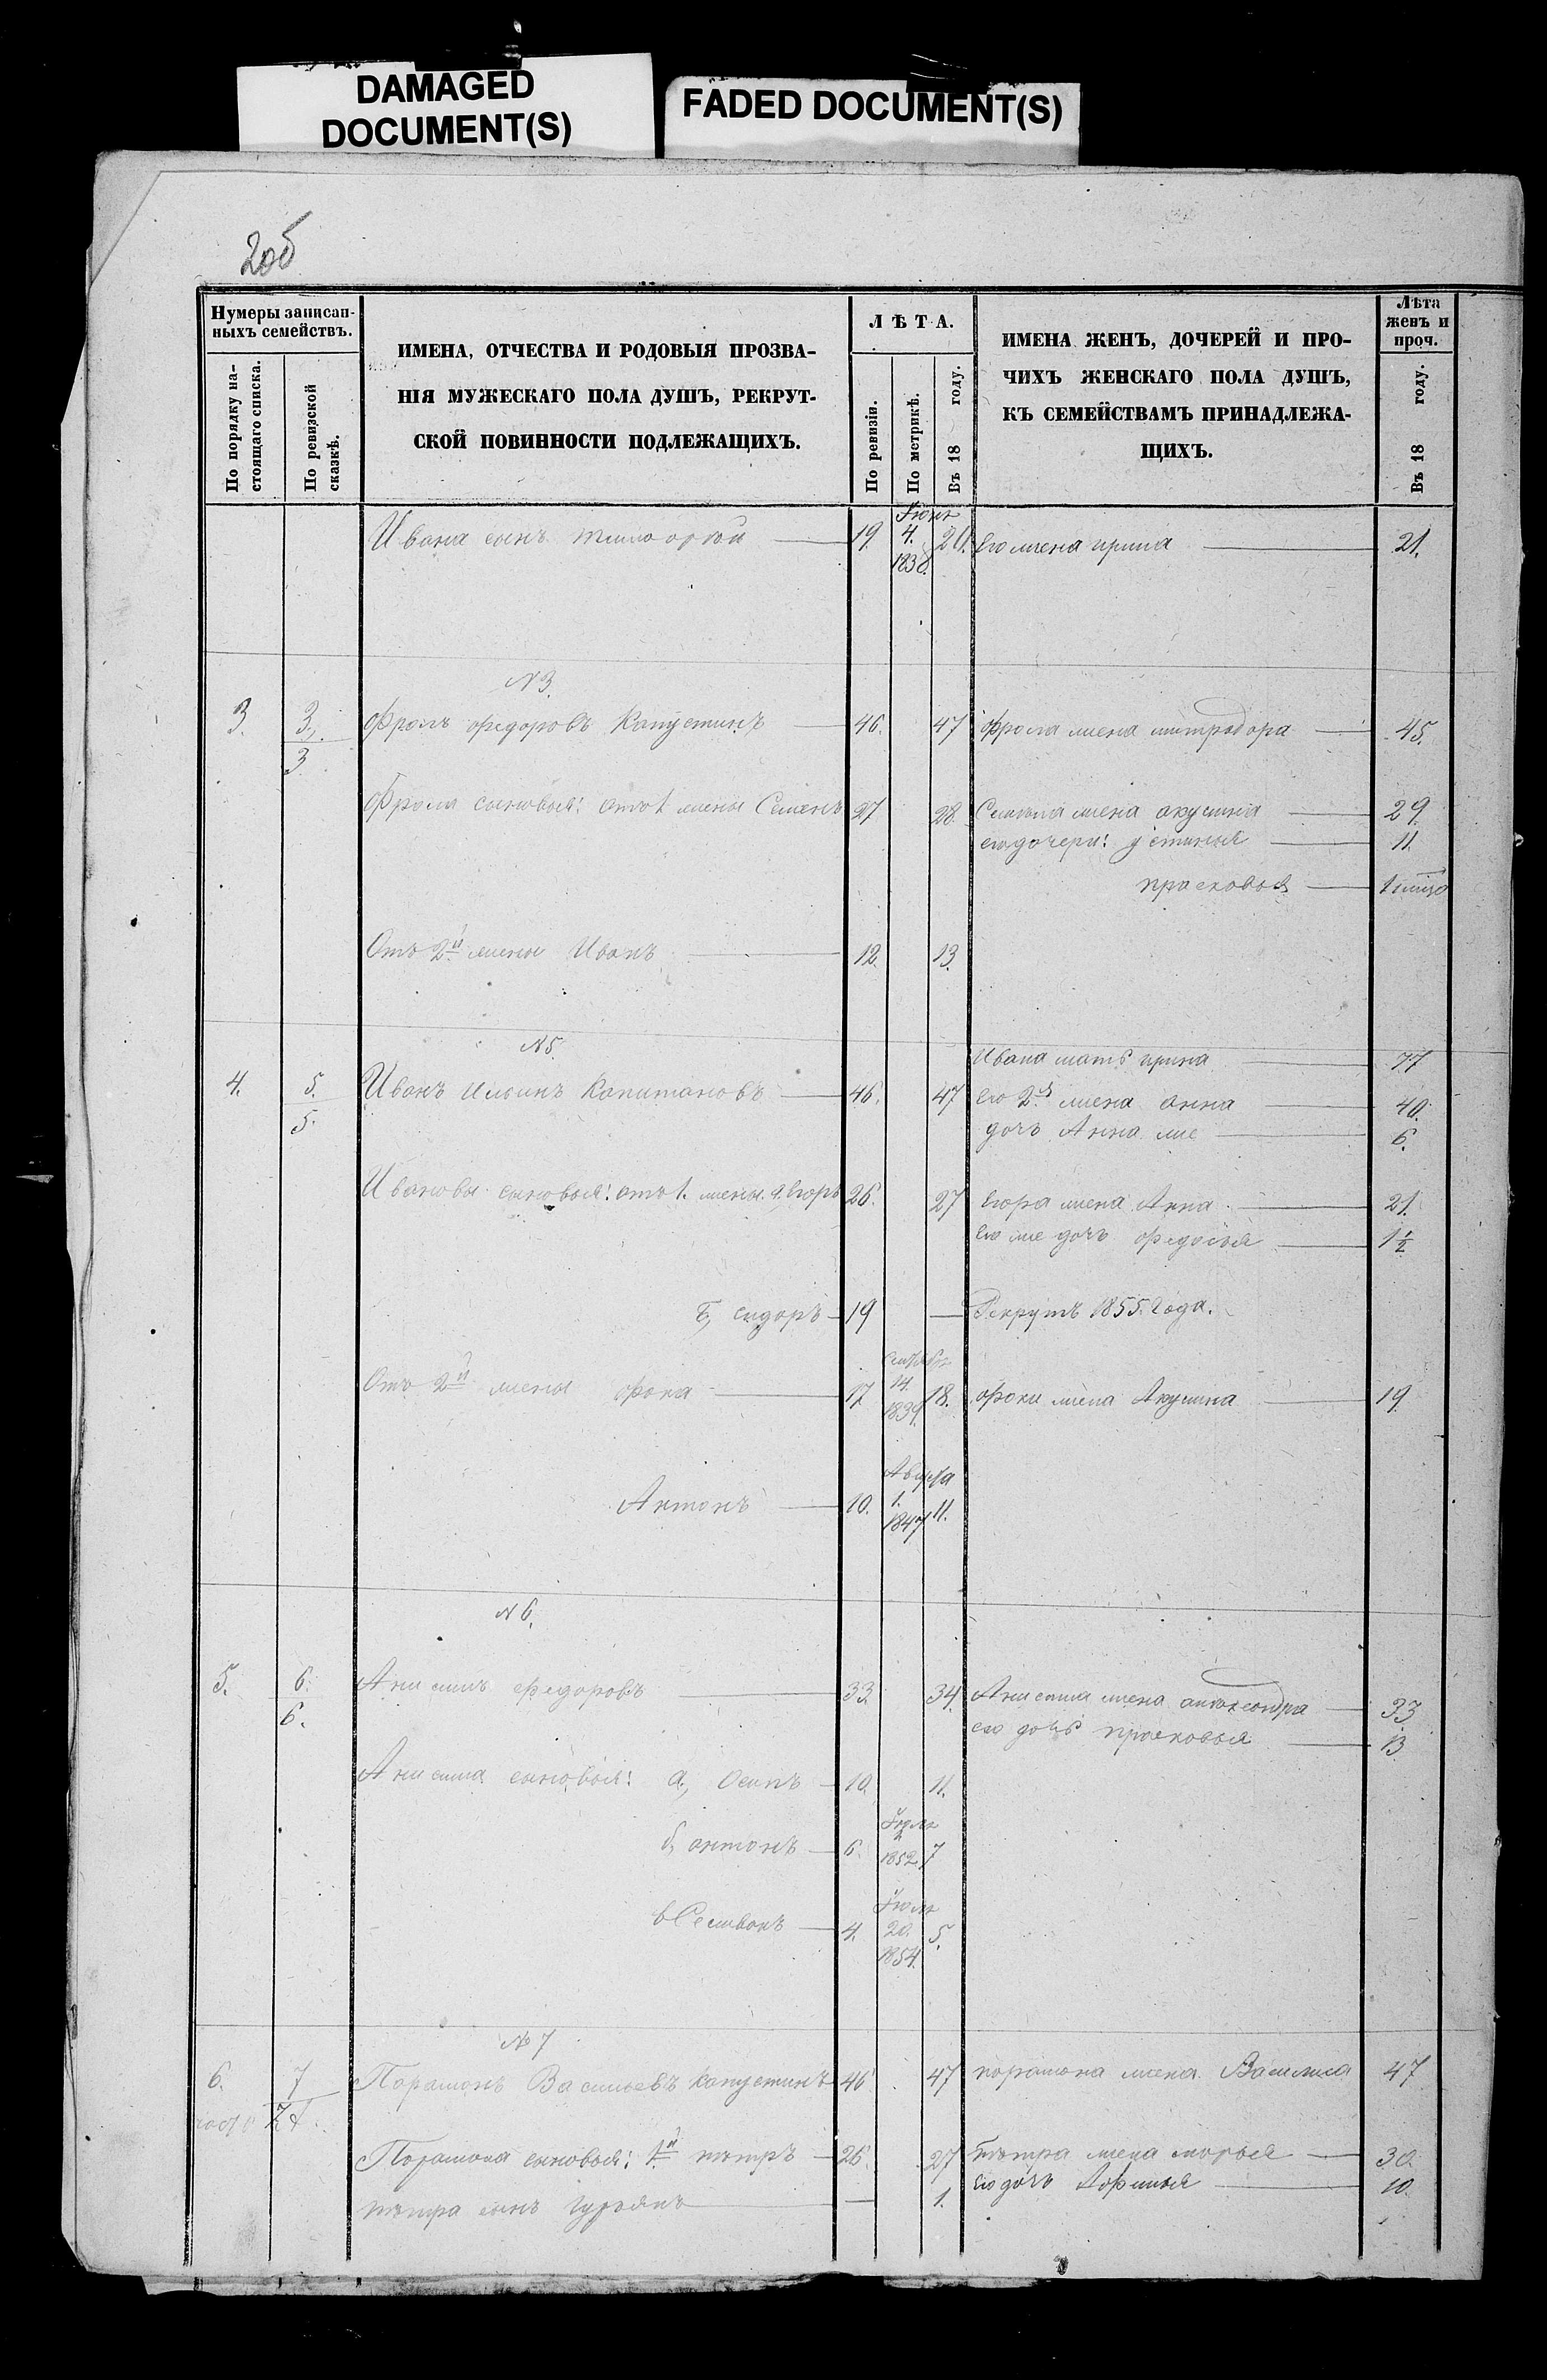 DAMAGED
DOCUMENT(S)
FADED DOCUMENT(S)
2об
Нумеры записан-
ныхъ семействъ.
По порядку на-
стоящаго списка.
По ревизской
сказкѣ.
ИМЕНА, ОТЧЕСТВА И РОДОВЫЯ ПРОЗВА-
НІЯ МУЖЕСКАГО ПОЛА ДУШЪ, РЕКРУТ-
СКОЙ ПОВИННОСТИ ПОДЛЕЖАЩИХЪ.
ЛѢТА.
По ревизіи.
По метрикѣ.
Въ 18 году.
ИМЕНА ЖЕНЪ, ДОЧЕРЕЙ И ПРО-
ЧИХЪ ЖЕНСКАГО ПОЛА ДУШЪ,
КЪ СЕМЕЙСТВАМЪ ПРИНАДЛЕЖА-
ЩИХЪ.
Лѣта
женъ и
проч.
Въ 18 году.
Ивана сынъ тимофей 19. 4. 1838. 20. Его жена ирина 21.
N 3.
3. 3. Фролъ федоровъ Капустинъ 46. 47 фрола жена митродора 45.
3
Фрола сыновья: отъ 1 жены Семенъ 27 28. Семена жена акулина 29.
его дочери: устинья 11.
прасковья 1
Отъ 2й жены Иванъ 12. 13.
N 5.
Ивана мать ирина 77
4. 5. Иванъ Ильинъ Капитановъ 46. 47 его 2я жена анна 40.
5. дочь Анна 6.
Ивановы сыновья: отъ 1. жены а, Егоръ 26. 27 Егора жена Анна 21.
его же дочь федосья 1½
б, сидоръ 19 Рекрутъ 1855. года.
Отъ 2й жены фока 17 14. 1839 18. фоки жена Акулина 19.
Августа
Антонъ 10. 1. 1847 11.
N 6.
5. 6. Анисимъ федоровъ 33 34. Анисима жена александра 33
6. его дочь прасковья 13
Анисима сыновья: а, Осипъ 10. 11.
б, антонъ 6. 1852 7
в Селиванъ 4. 20. 1854. 5.
№ 7
6. 7 Парамонъ Васильевъ Капустинъ 46. 47 парамона жена Василиса 47
Парамона сыновья: 1й петръ 26. 27 петра жена марья 30.
петра сынъ гурьянъ 1. его дочь Афимья 10.